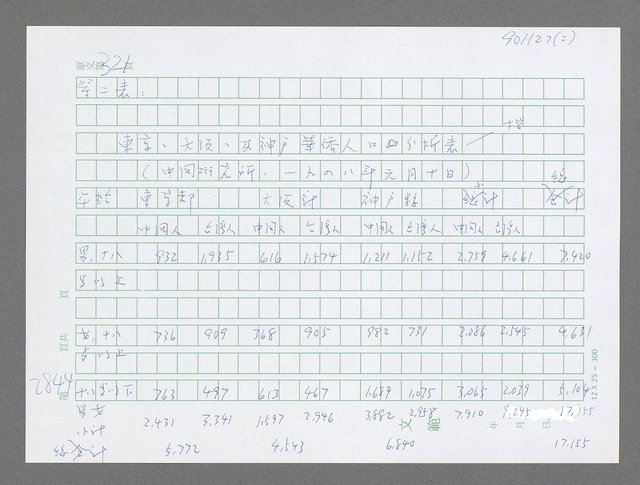 901127(二)
原文第321頁
第二表:
東京、大阪、及神戶華僑人口四分析表
(中國研究所,一九四八年元月十日)
年齡 東京都 大阪計 神戶縣 總計
中國人 台灣人 中國人 台灣人 中國人 台灣人 中國人 台灣人
男,十八 932 1,935 616 1,574 1,211 1,152 2,759 4,661 7,420
歲以上
女,十八 736 909 368 905 982 731 2,086 2,545 4,631
歲以上
十八歲以下 763 497 613 467 1,689 1,075 3,065 2,039 5,104
男女 2,431 3,341 1,597 2,946 3,882 2,958 7,910 9,245 17,155
小計
總計 5,772 4,543 6,840 17,155
文範
年 月 日
頁共 頁
第2844
12 X 25 = 300